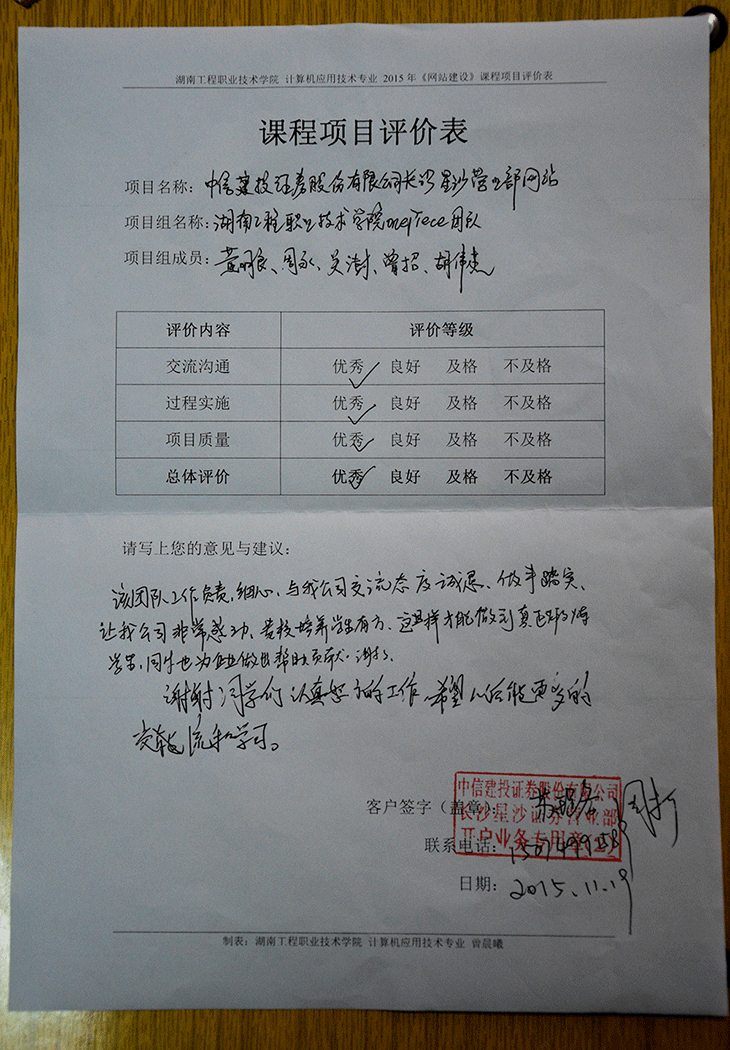 湖南工程职业技术学院 计算机应用技术专业 2015 年《网站建设》课程项目评价表
课程项目评价表
项目名称：中信建投证券股份有限公司长沙星沙营业部网站
项目组名称：湖南工程职业技术学院onepiece团队
项目组成员：黄明良、周永、吴澍、曾招、胡伟杰
评价内容 评价等级
交流沟通 优秀✓ 良好 及格 不及格
过程实施 优秀✓ 良好 及格 不及格
项目质量 优秀✓ 良好 及格 不及格
总体评价 优秀✓ 良好 及格 不及格
请写上您的意见与建议：
该团队工作负责，细心，与我公司交流态度诚恳、做事踏实、
让我公司非常感动、贵校培养学生有方、这样才能做到真正的
同时也为企业做出帮助贡献，谢谢、
谢谢同学们认真努力的工作，希望以后能更多的
交流和学习。
客户签字（盖章）：
中信建投证券股份有限公司
长沙星沙证券营业部
开户业务专用章
联系电话：
日期：2015.11.19
制表：湖南工程职业技术学院 计算机应用技术专业 曾晨曦